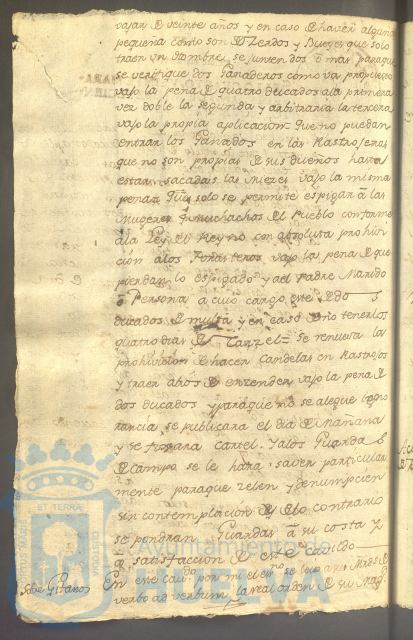 vajar de veinte años y en caso de haver alguna
pequeña como son de Zerdos y Bueyes que solo
traen un Hombre, se junten dos o mas para que
se verifique dos Ganaderos como va propuesto
vajo la pena de quatro ducados ala primera
vez doble la segunda y arbitraria la tercera
vajo la propia aplicacion = Que no puedan
entrar los Ganados en las Rastrojeras
que no son propias de sus dueños hasta
estar sacadas las Miezes vajo la misma
pena = Que solo se permite espigar a las
Mugeres y muchachos del Pueblo conforme
ala Ley del Reyno con absoluta prohivi
cion alos forasteros vajo las penas de que
pierdan lo espigado y al Padre Marido
o Persona a cuio cargo este de dos
ducados de multa y en caso de no tenerlos
quatro dias de Carzel = se renueva la
prohivicion de hacer Candelas en Rastrojos
y traer abios de enzender vajo la pena de
dos ducados y para que no se alegue igno
rancia se publicara el dia de mañana
y se fixara cartel. Y alos Guardas de
el campo se le hara saver particular
mente para que zelen y denuncien
sin contemplacion y de lo contrario
se pondran Guardas a su costa y
a satisfaccion de este cavildo
Sobre Gitanos
En este cavdo. por mi el essno. se leyo
verbo ad verbum la real orden de su Mag.
ET TERRA
CUSTODIA
Ayuntamiento de
HUELVA